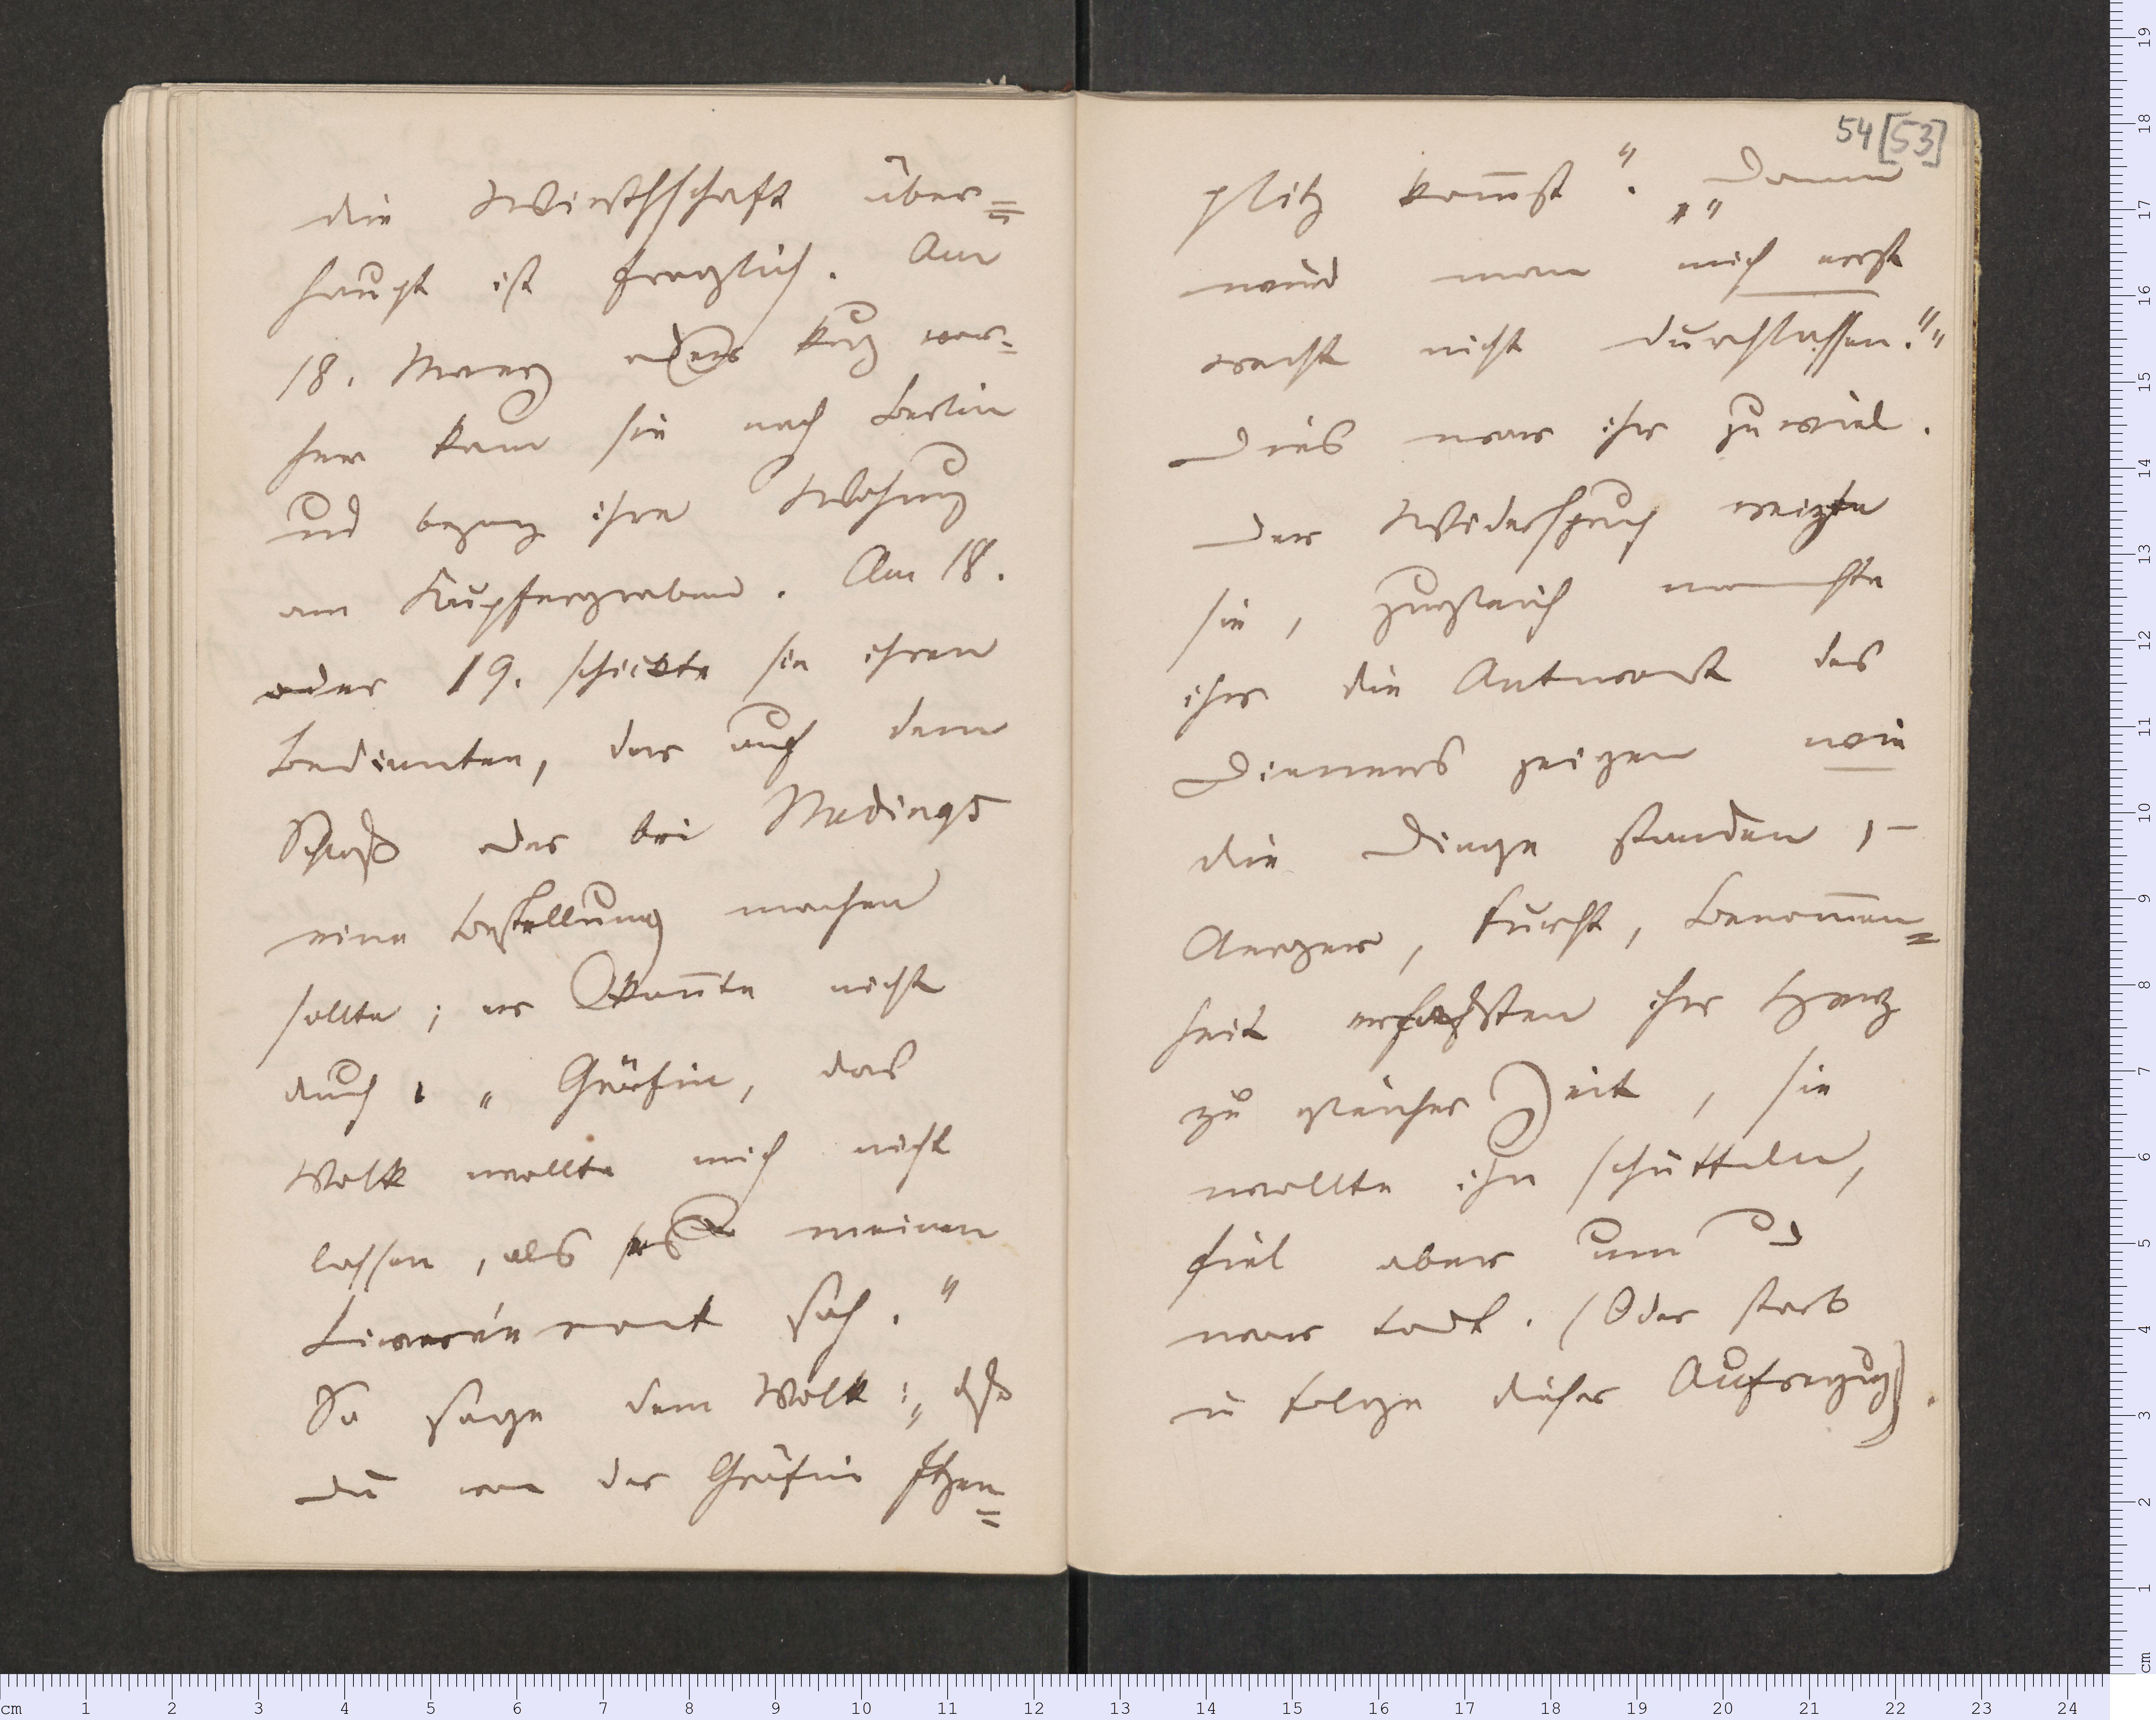 die Wirthschaft über=
haupt ist fraglich. Am
18. Maerz oder kurz vor=
her kam sie nach Berlin
und bezog ihre Wohnung
am Kupfergraben. Am 18.
oder 19. schickte sie ihren
Bedienten, der auf dem
Schloß oder bei Medings
eine Bestellung machen
sollte; er konnte nicht
durch. „Gräfin, das
Volk wollte mich nicht
lassen, als es meinen
Livréerock sah."
So sage dem Volk: „daß
du von der Gräfin Itzen=
54 [53]
plitz kom̅st". „„Dann
wird man mich erst
recht nicht durchlassen.""
Dies war ihr zu viel.
Der Widerspruch reizte
sie, zugleich mochte
ihr die Antwort des
Dieners zeigen wie
die Dinge standen, –
Aerger, Furcht, Benom̅en=
heit erfaßten ihr Herz
zu gleicher Zeit, sie
wollte ihn schütteln,
fiel aber um und
war todt. (Oder starb
in Folge dieser Aufregung).
cm 1 2 3 4 5 6 7 8 9 10 11 12 13 14 15 16 17 18 19 20 21 22 23 24
cm 1 2 3 4 5 6 7 8 9 10 11 12 13 14 15 16 17 18 19